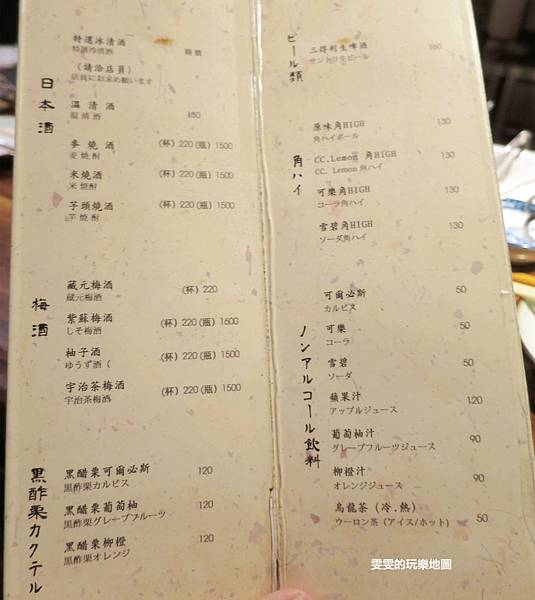 日本酒
特選冰清酒
特選冷清酒 時價
（請洽店員）
店員にお求め願います
溫清酒 180
温清酒
麥燒酒 (杯) 220 (瓶) 1500
麦焼酎
米燒酒 (杯) 220 (瓶) 1500
米焼酎
芋頭燒酒 (杯) 220 (瓶) 1500
芋焼酎
梅酒
藏元梅酒 (杯) 220
蔵元梅酒
紫蘇梅酒 (杯) 220 (瓶) 1600
しそ梅酒
柚子酒 (杯) 220 (瓶) 1500
ゆうず酒 (
宇治茶梅酒 (杯) 220 (瓶) 1500
宇治茶梅酒
黒酢栗カクテル
黑醋栗可爾必斯 120
黒酢栗カルピス
黑醋栗葡萄柚 120
黒酢栗グレープフルーツ
黑醋栗柳橙 120
黒酢栗オレンジ
ビール類
三得利生啤酒 160
サントリ生ビール
角ハイ
原味角HIGH 130
角ハイボール
CC.Lemon 角HIGH 130
CC. Lemon 角ハイ
可樂角HIGH 130
コーラ角ハイ
雪碧角HIGH 130
ソーダ角ハイ
ノンアルコール飲料
可爾必斯 50
カルピス
可樂 50
コーラ
雪碧 50
ソーダ
蘋果汁 120
アップルジュース
葡萄柚汁 90
グレープフルーツジュース
柳橙汁 90
オレンジジュース
烏龍茶（冷.熱） 50
ウーロン茶 (アイス/ホット)
雯雯的玩樂地圖